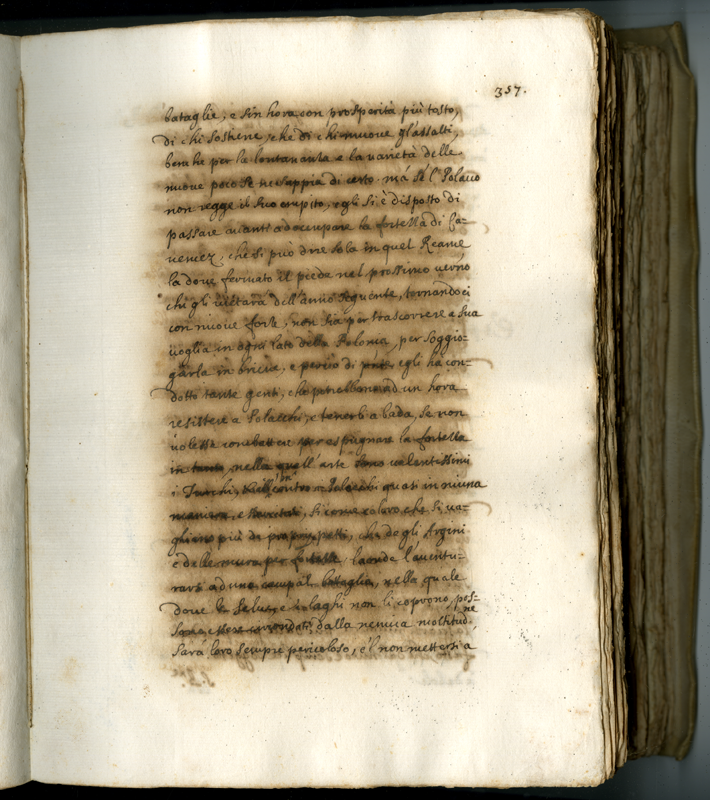 357.
battaglie, e sin hora con prosperità più tosto,
di chi sostiene, che di chi muove gl'assalti,
benche per la lontananza e la varietà delle
nuove poco se ne sappia di certo. má se l' Polacco
non regge il suo empito, egli si è disposto di
passare avanti ad occupare la fortezza di Ca=
menez, che si può dire sola in quel Reame
la dove fermato il piede nel prossimo verno
chi gli vietarà dell'anno seguente, tornandoci
con nuove forze, non sia per trascorrere a sua
voglia in ogni lato della Polonia, per soggio=
garla in brieve, e perciò di egli ha con=
dotto tante genti, che potrebbono ad un hora
resistere a Polacchi, e tenerli a bada, se non
volesse combattere per espugnare la fortezza
in tanto, nella quell'arte sono valentissimi
i Turchi, contro Polacchi quasi in niuna
maniera, e si come coloro che si va=
gliono più di petti, che de gli Argini
e delle mura per fortezze, laonde l'aventu=
rarsi ad una campal battaglia, nella quale
dove le selve e laghi non li coprono, pos=
sono essere circondati dalla nemica moltitudine
sarà loro sempre pericoloso, e'l non mettersi à